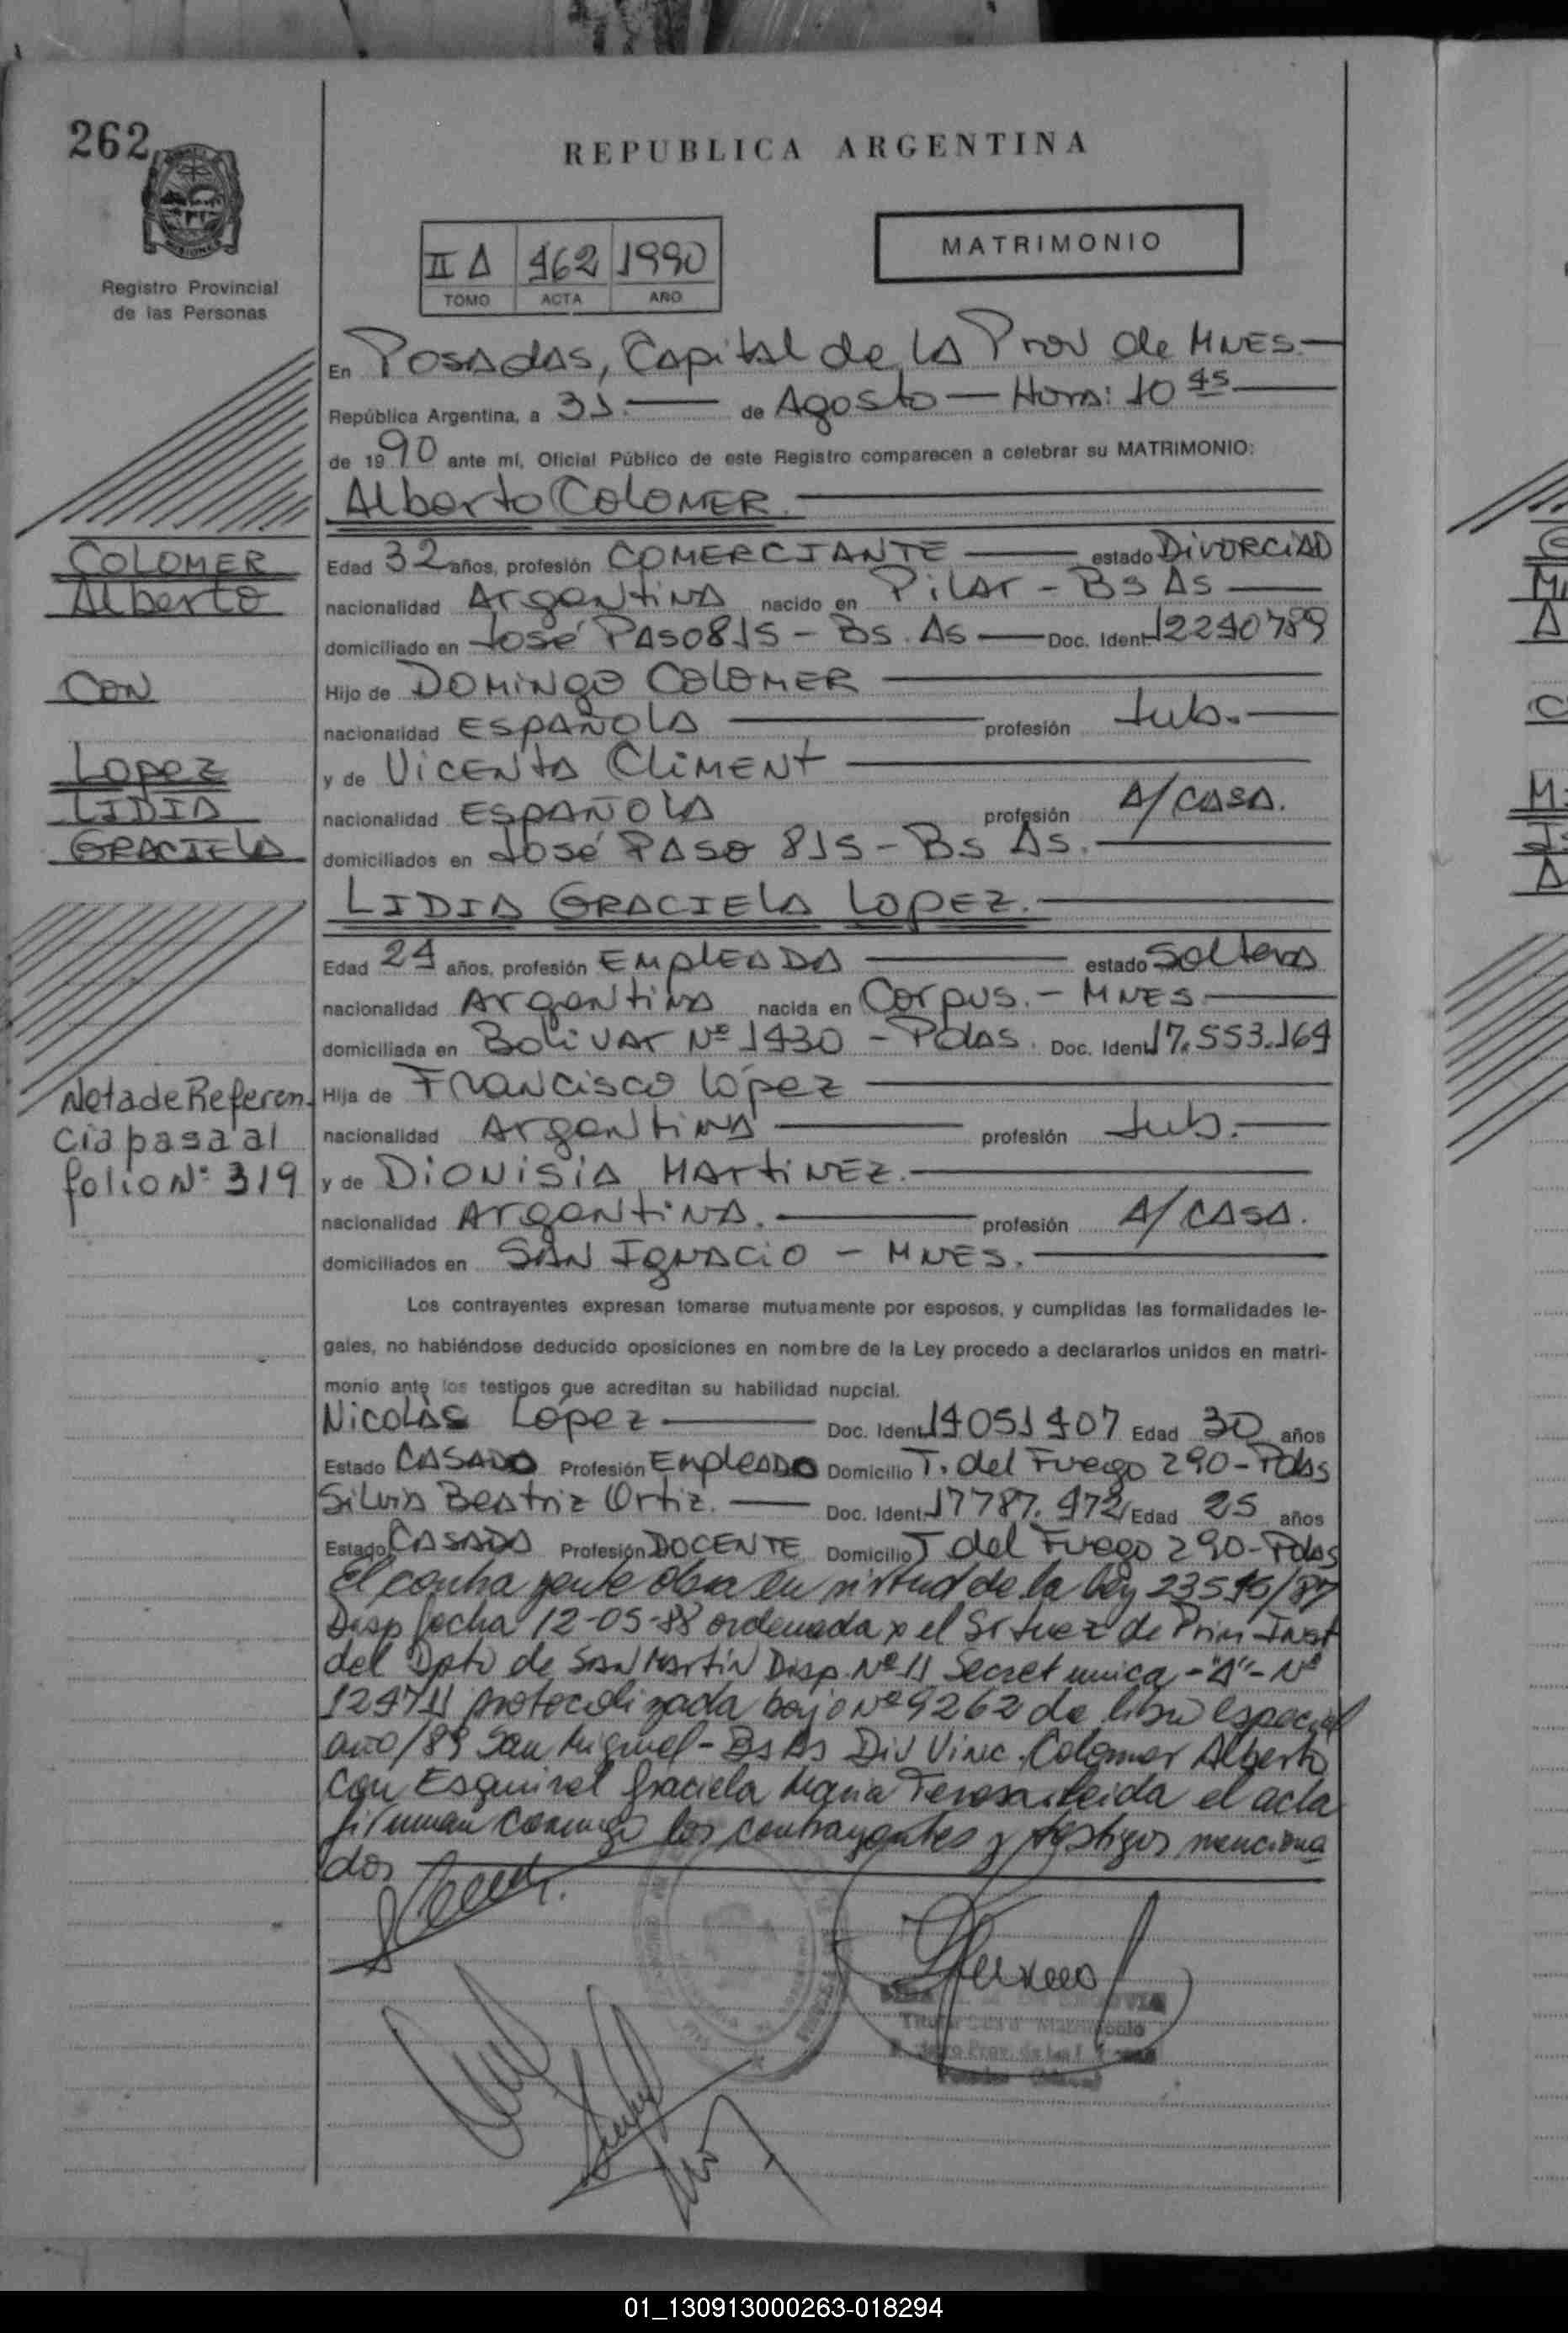 262
REPUBLICA ARGENTINA
MATRIMONIO
II A 462 1990
TOMO ACTA AÑO
Registro Provincial
de las Personas
En Posadas, Capital de la Prov de MNES.
República Argentina, a 31. de Agosto Hora: 10 45
de 1990 ante mí, Oficial Público de este Registro comparecen a celebrar su MATRIMONIO:
Alberto COLOMER.
COLOMER
Alberto
CON
Lopez
LIDIA
GRACIELA
Edad 32 años, profesión COMERCIANTE estado DIVORCIAD
nacionalidad Argentina nacido en Pilar - Bs As
domiciliado en José PASO 815 - Bs. As Doc. Ident. 12240789
Hijo de DOMINGO COLOMER
nacionalidad ESPAÑOLA profesión Jub.
y de VICENTA CLIMENT
nacionalidad ESPAÑOLA profesión A/CASA.
domiciliados en José PASO 815 - Bs As.
LIDIA GRACIELA LOPEZ.
Edad 24 años, profesión EMPLEADA estado Soltera
nacionalidad Argentina nacida en Corpus. - MNES.
domiciliada en Bolivar Nº 1430 - Pdas. Doc. Ident. 17.553.164
Hija de Francisco López
nacionalidad Argentina profesión Jub.
y de DIONISIA MARTINEZ.
nacionalidad Argentina. profesión A/CASA.
domiciliados en SAN IGNACIO - MNES.
Nota de Referen
cia pasa al
folio Nº 319
Los contrayentes expresan tomarse mutuamente por esposos, y cumplidas las formalidades le-
gales, no habiéndose deducido oposiciones en nombre de la Ley procedo a declararlos unidos en matri-
monio ante los testigos que acreditan su habilidad nupcial.
Nicolás López Doc. Ident. 14051407 Edad 30 años
Estado CASADO Profesión Empleado Domicilio T. del Fuego 290-Pdas
Silvia Beatriz Ortiz. Doc. Ident. 17787.472 Edad 25 años
Estado CASADA Profesión DOCENTE Domicilio T del Fuego 290-Pdas
El contrayente obra en virtud de la ley 23515/87
Disp fecha 12-05-88 ordenada x el Sr Juez de Prim Inst
del Dpto de San Martín Disp. Nº 11 Secret unica - "A" - Nº
12471 protocolizada bajo Nº 9262 de libro especial
año/89 San Miguel - Bs As Div Vinc. Colomer Alberto
con Esquivel Graciela Maria Teresa. leida el acta
firman conmigo los contrayentes y testigos menciona
dos
01_130913000263-018294